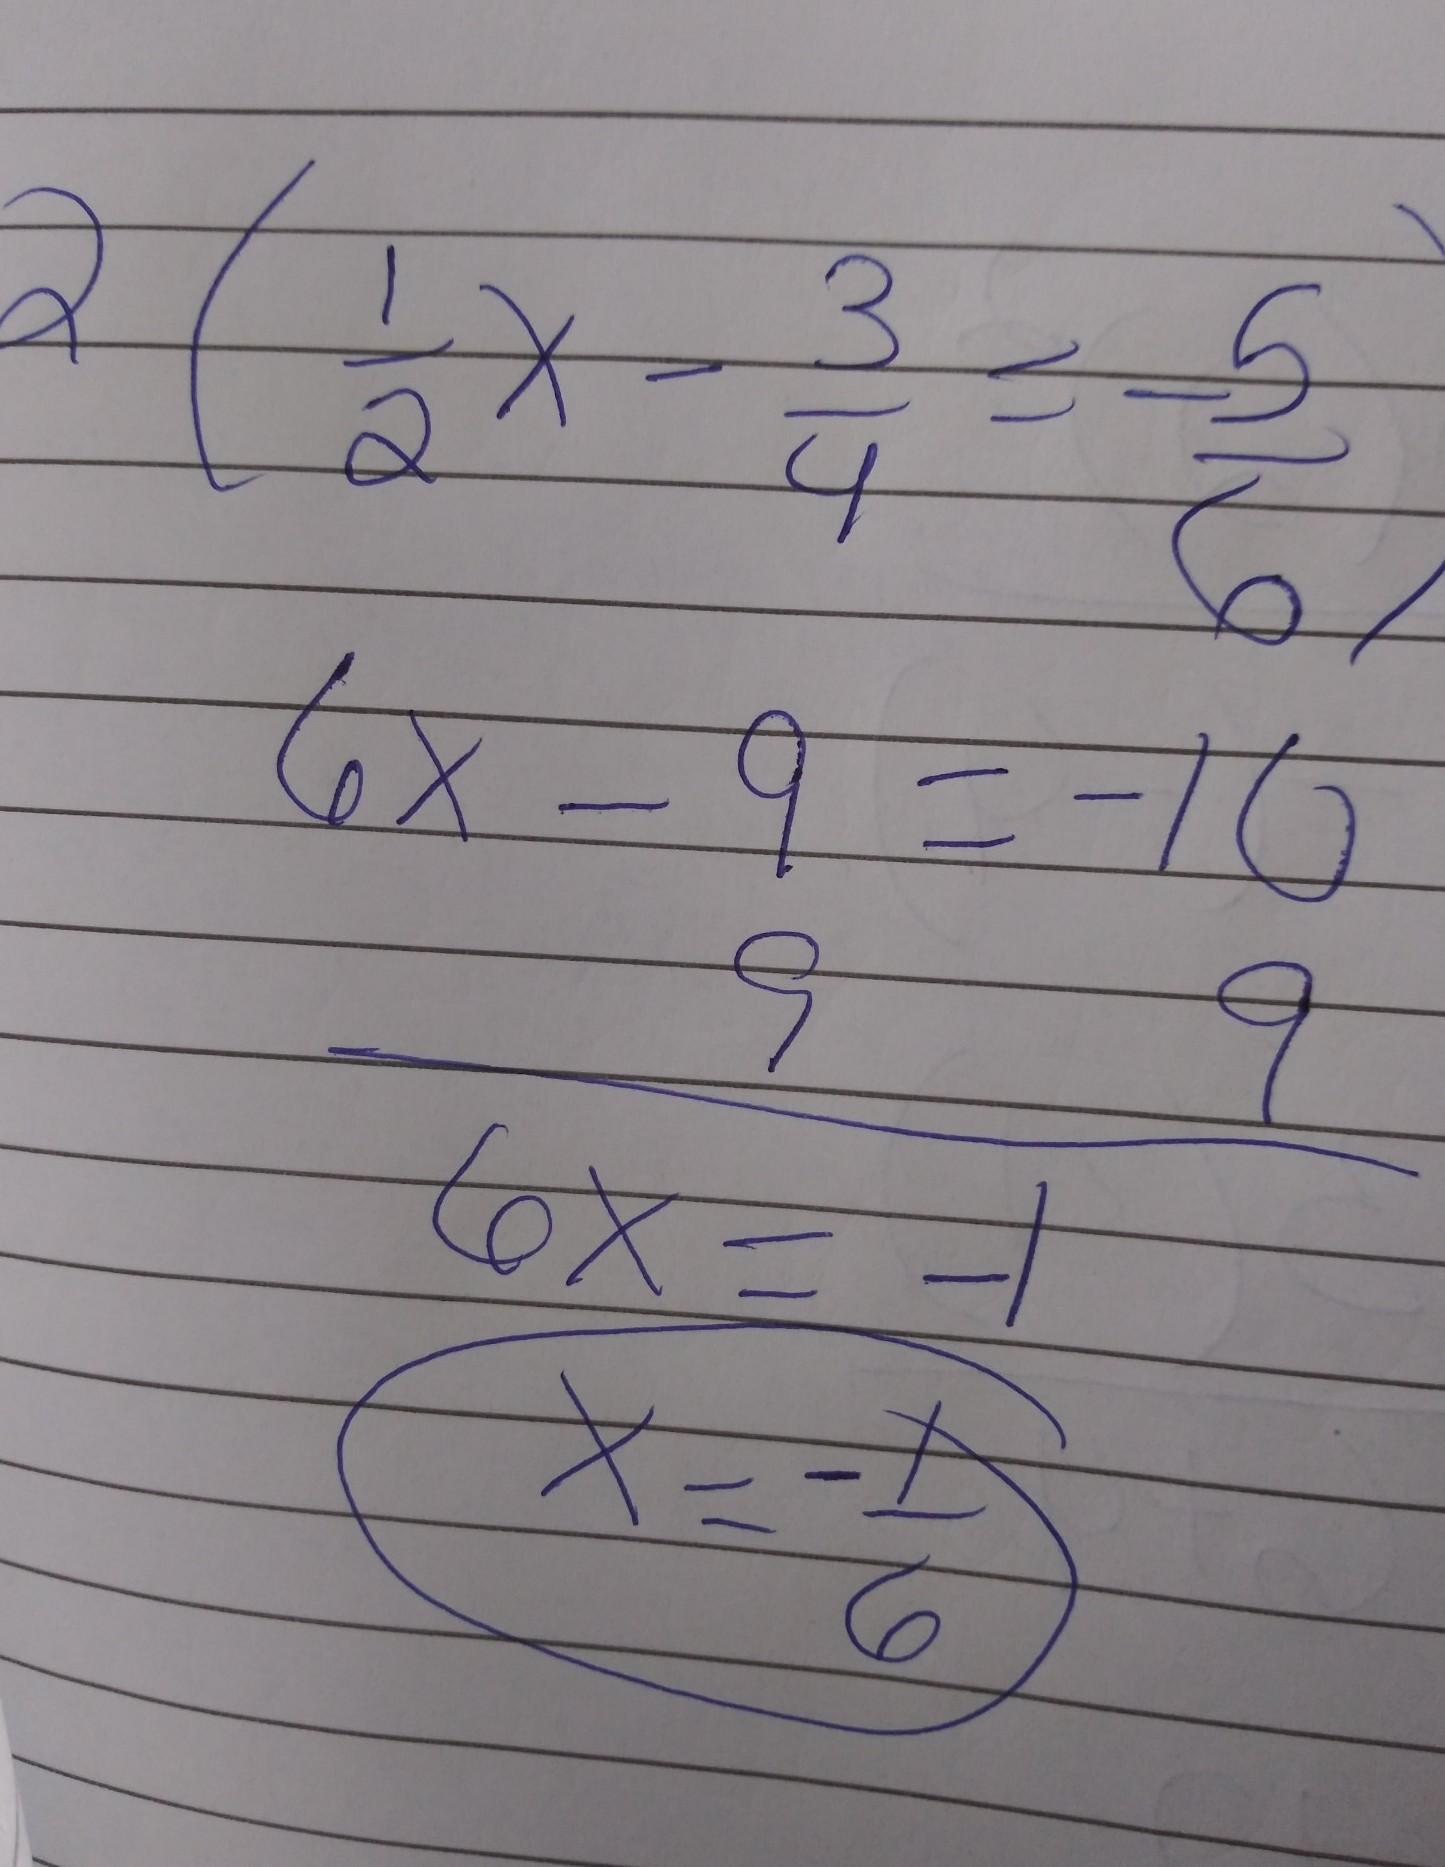 2 ( 1/2 x - 3/4 = - 5/6 )
6x - 9 = -10
9 9
6x = -1
x = - 1/6